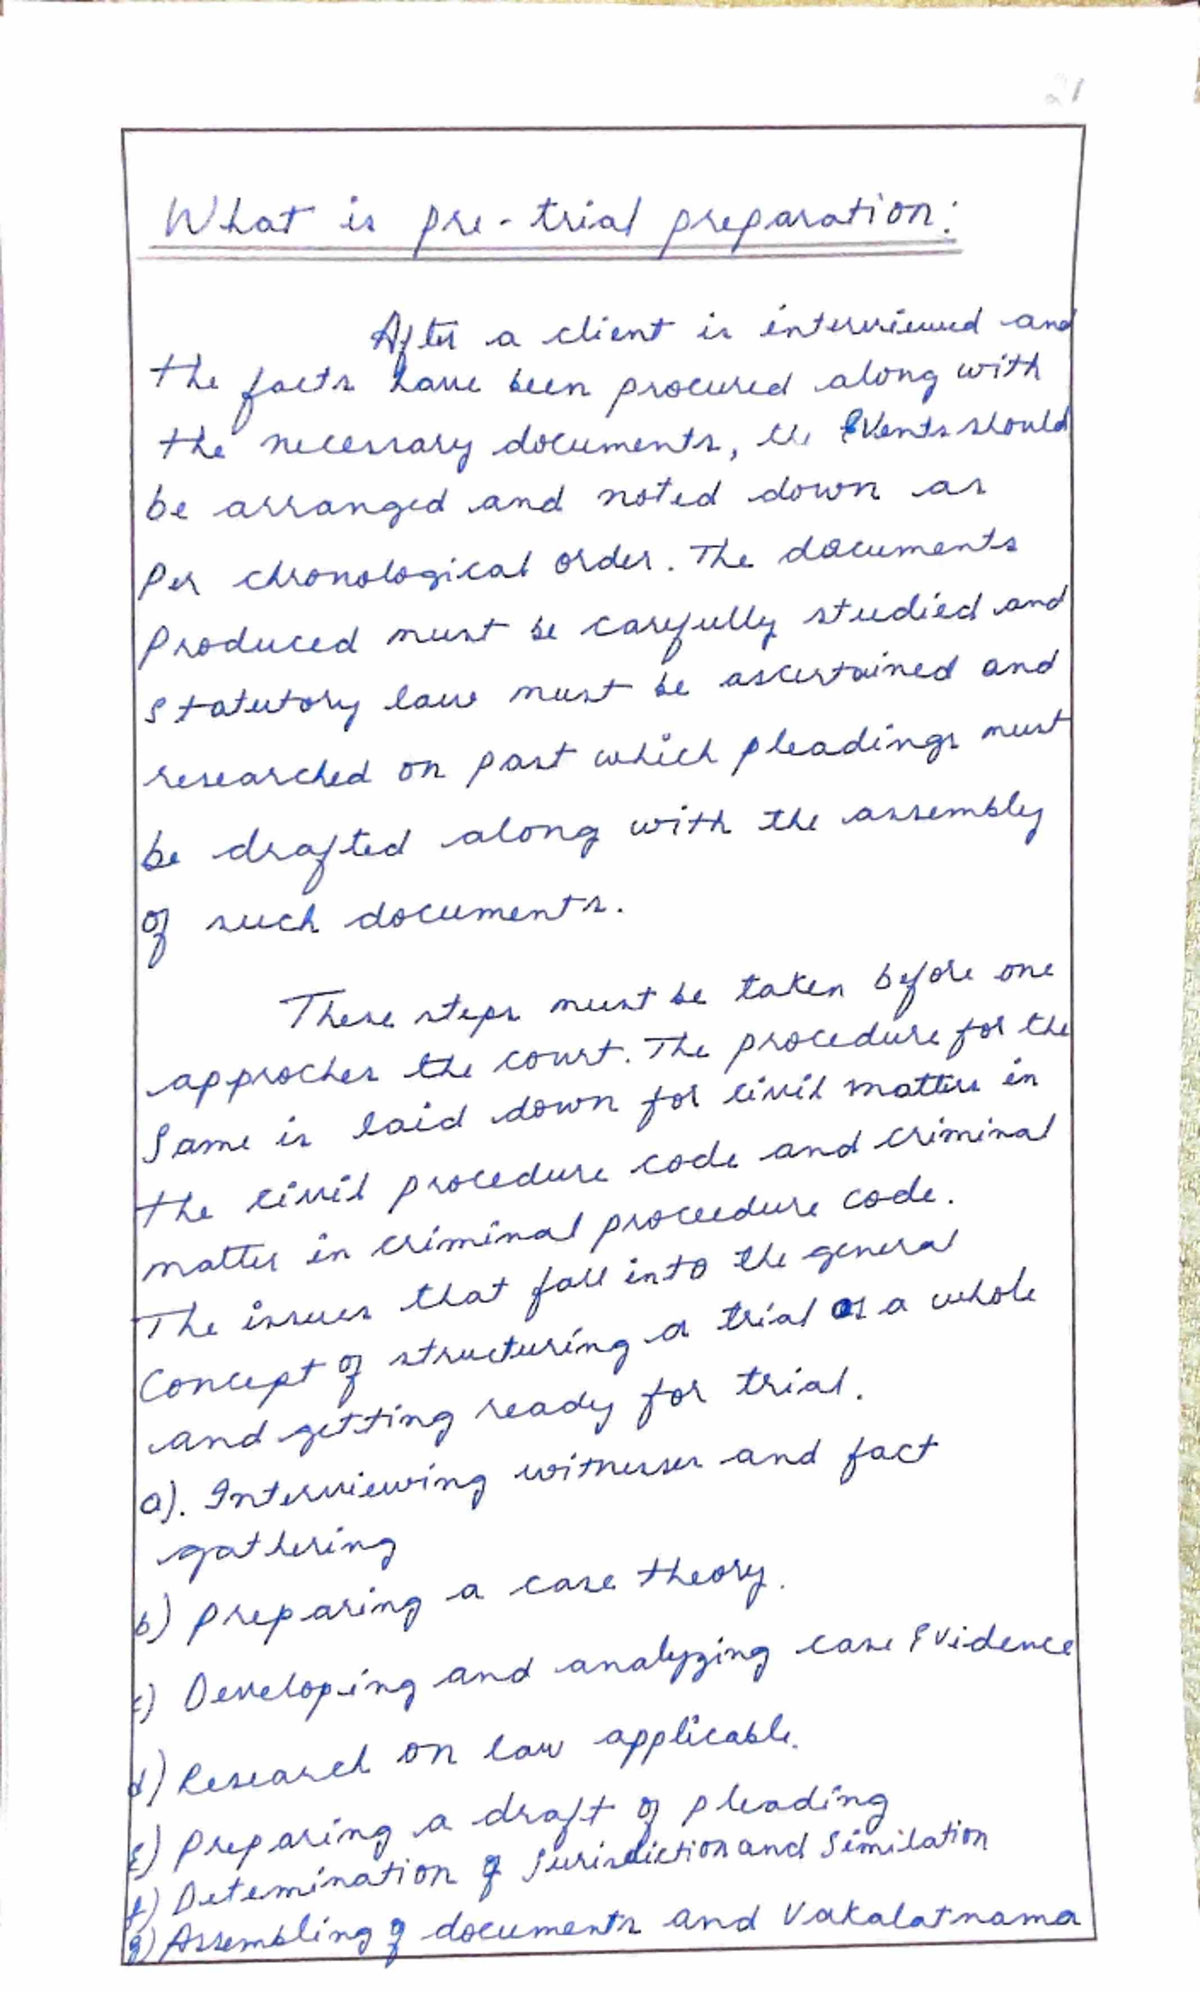 21
What is pre-trial preparation:
After a client is interviewed and
the facts have been procured along with
the necessary documents, the Events should
be arranged and noted down as
Per chronological order. The documents
Produced must be carefully studied and
statutory law must be ascertained and
researched on past which pleadings must
be drafted along with the assembly
of such documents.
These steps must be taken before one
approches the court. The procedure for the
Same is laid down for civil matters in
the civil procedure code and criminal
matter in criminal proceedure code.
The issues that fall into the general
Concept of structuring a trial as a whole
and getting ready for trial.
a). Interviewing witnesses and fact
gathering
b) preparing a case theory.
c) Developing and analyzing case Evidence
d) Research on law applicable.
E) preparing a draft of pleading
f) Detemination of Jurisdiction and Similation
g) Assembling of documents and Vakalatnama